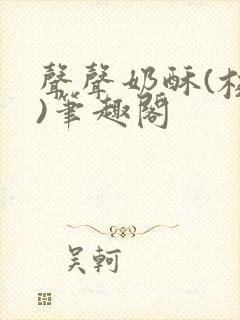 聲聲奶酥(校
)筆趣閣
吴軻